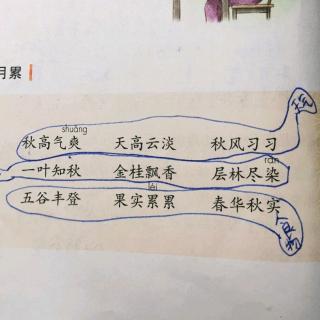 月累
shuǎng
秋高气爽 天高云淡 秋风习习
rǎn
一叶知秋 金桂飘香 层林尽染
lěi
五谷丰登 果实累累 春华秋实